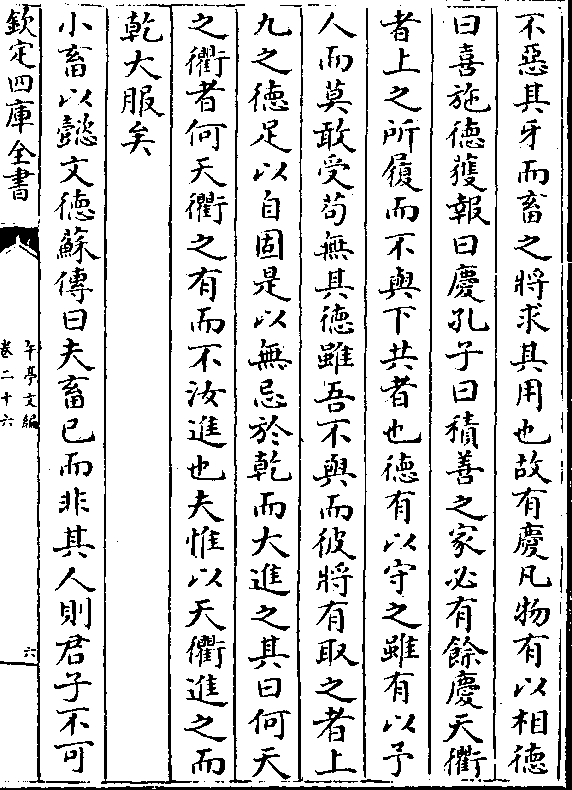 不惡其牙而畜之將求其用也故有慶凡物有以相德
曰喜施德獲報曰慶孔子曰積善之家必有餘慶天衢
者上之所履而不與下共者也德有以守之雖有以予
人而莫敢受苟無其德雖吾不與而彼將有取之者上
九之德足以自固是以無忌於乾而大進之其曰何天
之衢者何天衢之有而不汝進也夫惟以天衢進之而
乾大服矣
小畜以懿文德蘇傳曰夫畜已而非其人則君子不可
欽定四庫全書
午亭文編
卷二十六
六